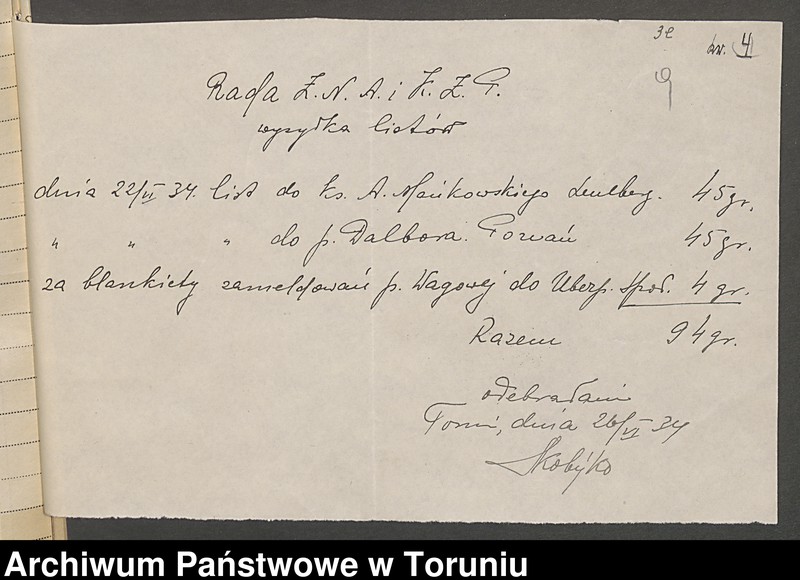 3e
kw. 4
9
Rada Z.N.A. i K.Z.P.
wysyłka listów
dnia 22/VI 34. list do ks. A. Mańkowskiego Lemberg. 45 gr.
„ „ „ do p. Dalbora. Poznań 45 gr.
za blankiety zameldowań p. Wagowej do Ubezp. społ. 4 gr.
Razem 94 gr.
odebrałam
Toruń, dnia 26/VI 34
Archiwum Państwowe w Toruniu